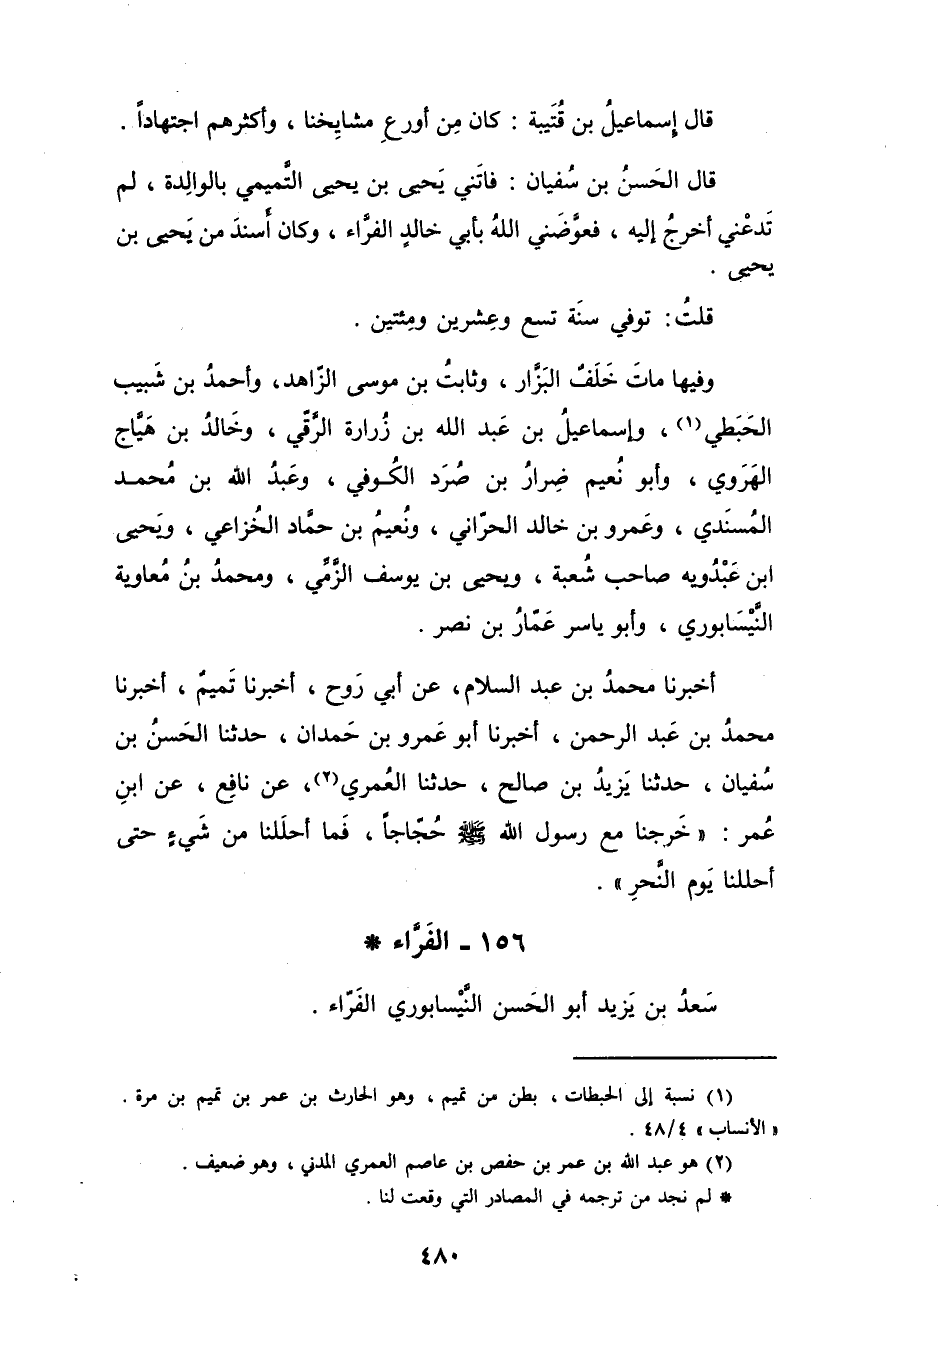 قال إسماعيلُ بن قُتَيبة : كان مِن أورعِ مشايِخنا ، وأكثرهم اجتهاداً .
قال الحَسنُ بن سُفيان : فاتَني يَحيى بن يحيى التَّميمي بالوالِدة ، لم
تَدعْني أخرجُ إليه ، فعوَّضَني اللهُ بأبي خالدٍ الفرَّاء ، وكان أَسندَ من يَحيى بن
يحيى .
قلتُ : توفي سنَة تسع وعِشرين ومِئتين .
وفيها ماتَ خَلَفٌ البَزَّار ، وثابتُ بن موسى الزّاهد، وأحمدُ بن شَبيب
الحَبَطي(١) ، وإسماعيلُ بن عَبد الله بن زُرارة الرَّقّي ، وخَالدُ بن هَيَّاج
الهَرَوي ، وأبو نُعيم ضِرارُ بن صُرَد الكُوفي ، وعَبدُ الله بن مُحمد
المُسنَدي ، وعَمرو بن خالد الحرّاني ، ونُعيمُ بن حمَّاد الخُزاعي ، ويَحيى
ابن عَبْدُويه صاحب شُعبة ، ويحيى بن يوسف الزَّمِّي ، ومحمدُ بنُ مُعاوية
النَّيْسَابوري ، وأبو ياسر عَمّارُ بن نصر .
أخبرنا محمدُ بن عبد السلام، عن أبي رَوح ، أخبرنا تَميمٌ ، أخبرنا
محمدُ بن عَبد الرحمن ، أخبرنا أبو عَمرو بن حَمدان ، حدثنا الحَسنُ بن
سُفيان ، حدثنا يَزيدُ بن صالح ، حدثنا العُمري(٢)، عن نافِع ، عن ابنِ
عُمر : « خَرجنا مع رسول الله ﷺ حُجّاجاً ، فَما أحلَلنا من شَيءٍ حتى
أحللنا يَوم النَّحرِ » .
١٥٦ - الفَرَّاء *
سَعدُ بن يَزيد أبو الحَسن النَّيْسابوري الفَرّاء .
(١) نسبة إلى الحبطات ، بطن من تميم ، وهو الحارث بن عمر بن تميم بن مرة .
« الأنساب » ٤/ ٤٨ .
(٢) هو عبد الله بن عمر بن حفص بن عاصم العمري المدني ، وهو ضعيف .
* لم نجد من ترجمه في المصادر التي وقعت لنا .
٤٨٠